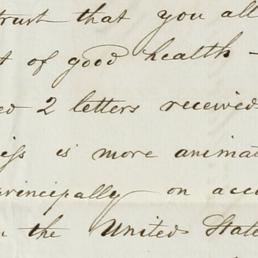 trust that you all
t of good health -
ed 2 letters received
ess is more animat
principally on acc
the United State